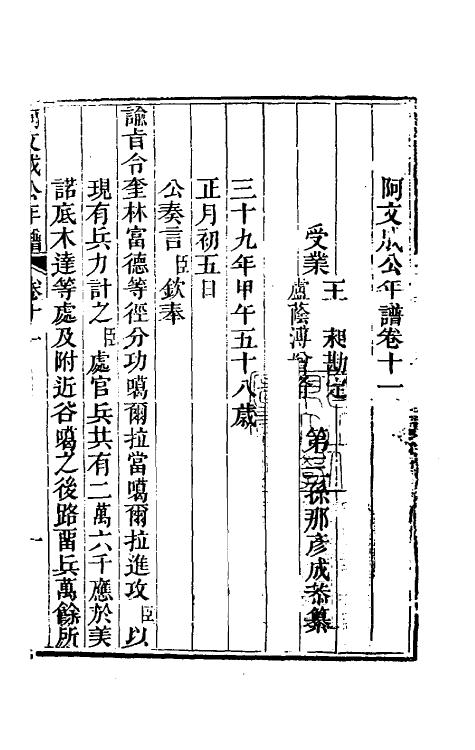 阿文成公年譜卷十一
王昶勘定
受業
盧蔭溥增修
第三孫那彥成恭纂
三十九年甲午五十八歲
正月初五日
公奏言臣欽奉
諭旨令奎林富德等徑分功噶爾拉當噶爾拉進攻臣以
現有兵力計之臣處官兵共有二萬六千應於美
諾底木達等處及附近谷噶之後路畱兵萬餘所
阿文成公年譜 卷十一 一